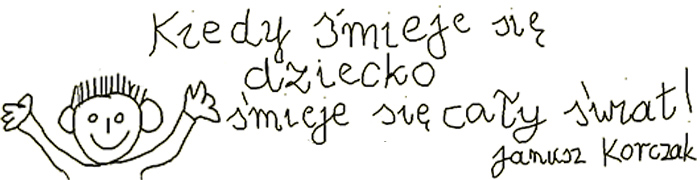 Kiedy śmieje się
dziecko
śmieje się cały świat!
Janusz Korczak